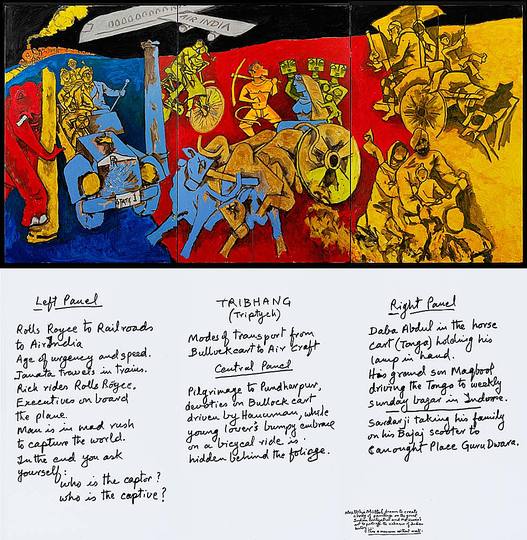 AIR INDIA
STATE 1
Left Panel
Rolls Royce to Railroads
to Air India
Age of urgency and speed.
Janata travels in trains.
Rich rides Rolls Royce,
Executives on board
the plane.
Man is in mad rush
to capture the world.
In the end you ask
yourself:
who is the captor?
who is the captive?
TRIBHANG
(Triptych)
Modes of transport from
Bullockcart to Air craft
Central Panel
Pilgrimage to Pundharpur,
devotees in Bullock cart
driven by Hanuman, while
young lover's bumpy embrace
on a bicycal ride is
hidden behind the foliage.
Right Panel
Daba Abdul in the horse
cart (Tonga) holding his
lamp in hand.
His grand son Maqbool
driving the Tonga to weekly
sunday bazar in Indore.
Sardarji taking his family
on his Bajaj scooter to
Canought Place GuruDwara.
This a museum without walls.